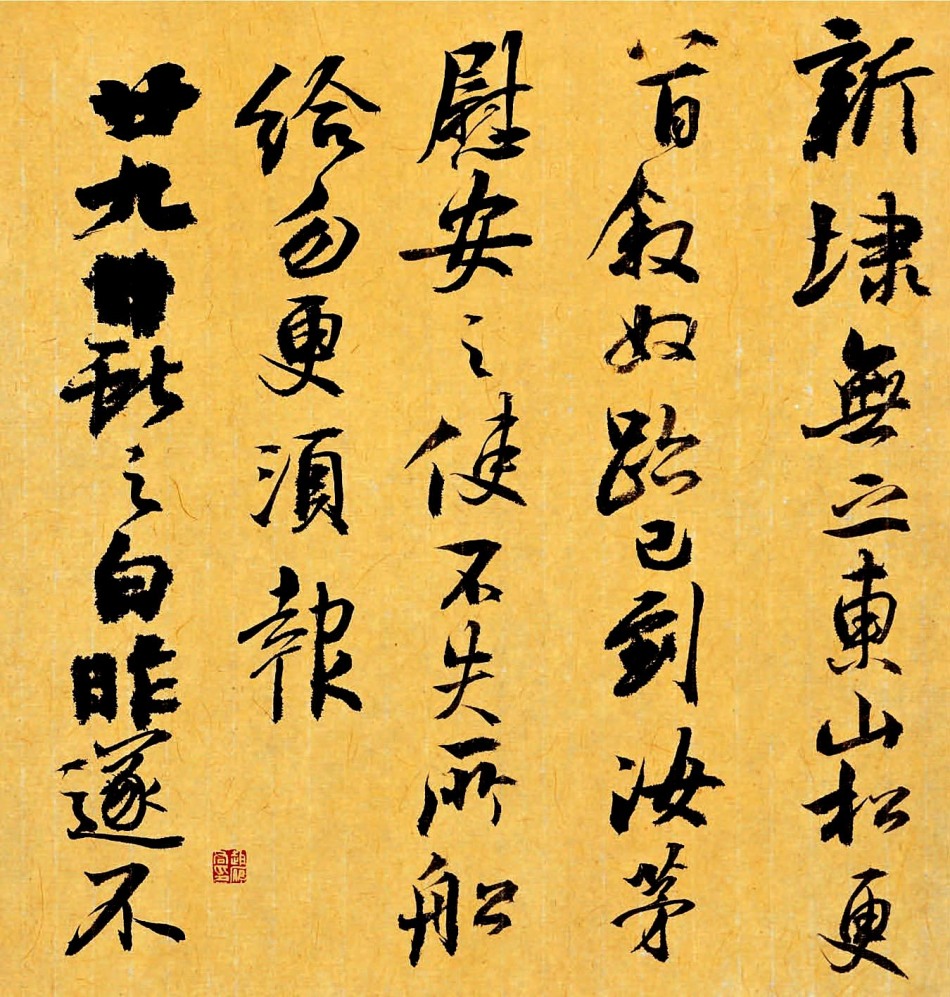 新埭無乏東山松更
百叙奴跆已到汝等
慰安之使不失所船
給勿更須報
廿九日獻之白昨遂不